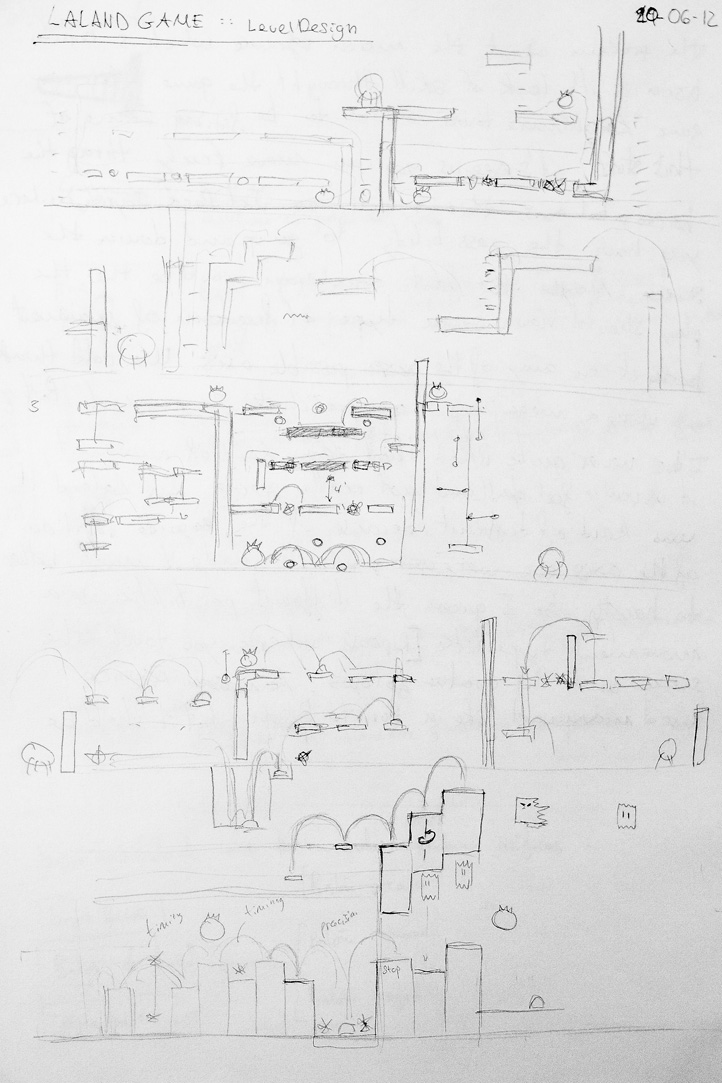 LALAND GAME :: LevelDesign
-06-12
3
4'
timing
timing
precision
stop